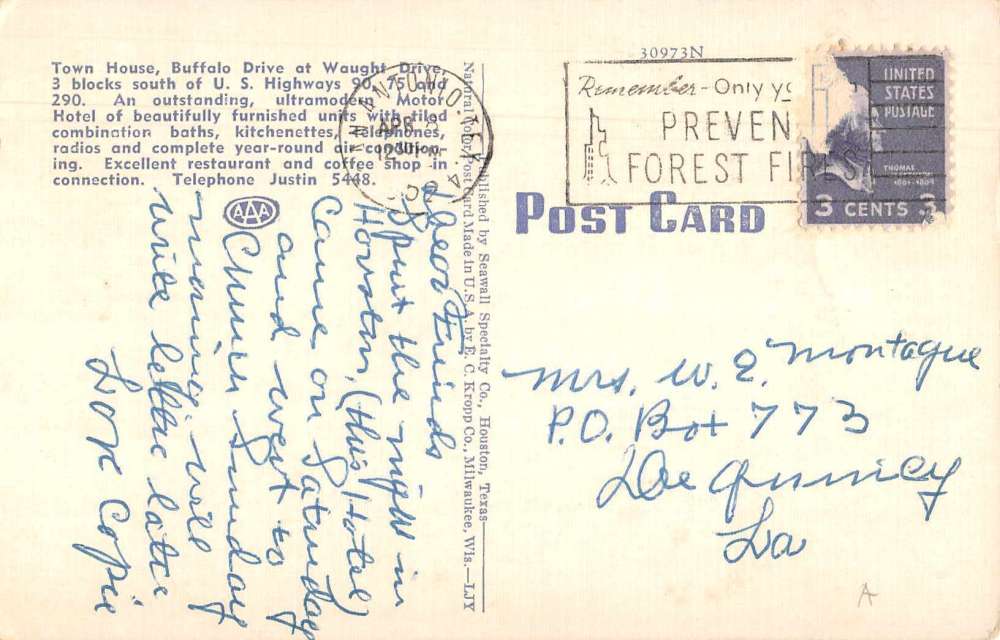 30973N
Town House, Buffalo Drive at Waught Drive,
3 blocks south of U. S. Highways 90, 75 and
290. An outstanding, ultramodern Motor
Hotel of beautifully furnished units with tiled
combination baths, kitchenettes, telephones,
radios and complete year-round air-condition-
ing. Excellent restaurant and coffee shop in
connection. Telephone Justin 5448.
AAA
SAN ANTONIO, TEX.
APR
12 30 PM
Remember - Only yo
PREVEN
FOREST FIRES
UNITED
STATES
POSTAGE
THOMAS
1801-1809
3 CENTS 3
POST CARD
Published by Seawall Specialty Co., Houston, Texas
Natural Color Post Card Made in U. S. A. by E. C. Kropp Co., Milwaukee, Wis.—LJY
Dear Friends
Spent the night in
Houston, (this Hotel)
Came on Saturday
and went to
Church Sunday
morning. will
write letter later
Love
Mrs. W. E. Montague
P.O. Box 773
De Quincy
La
A